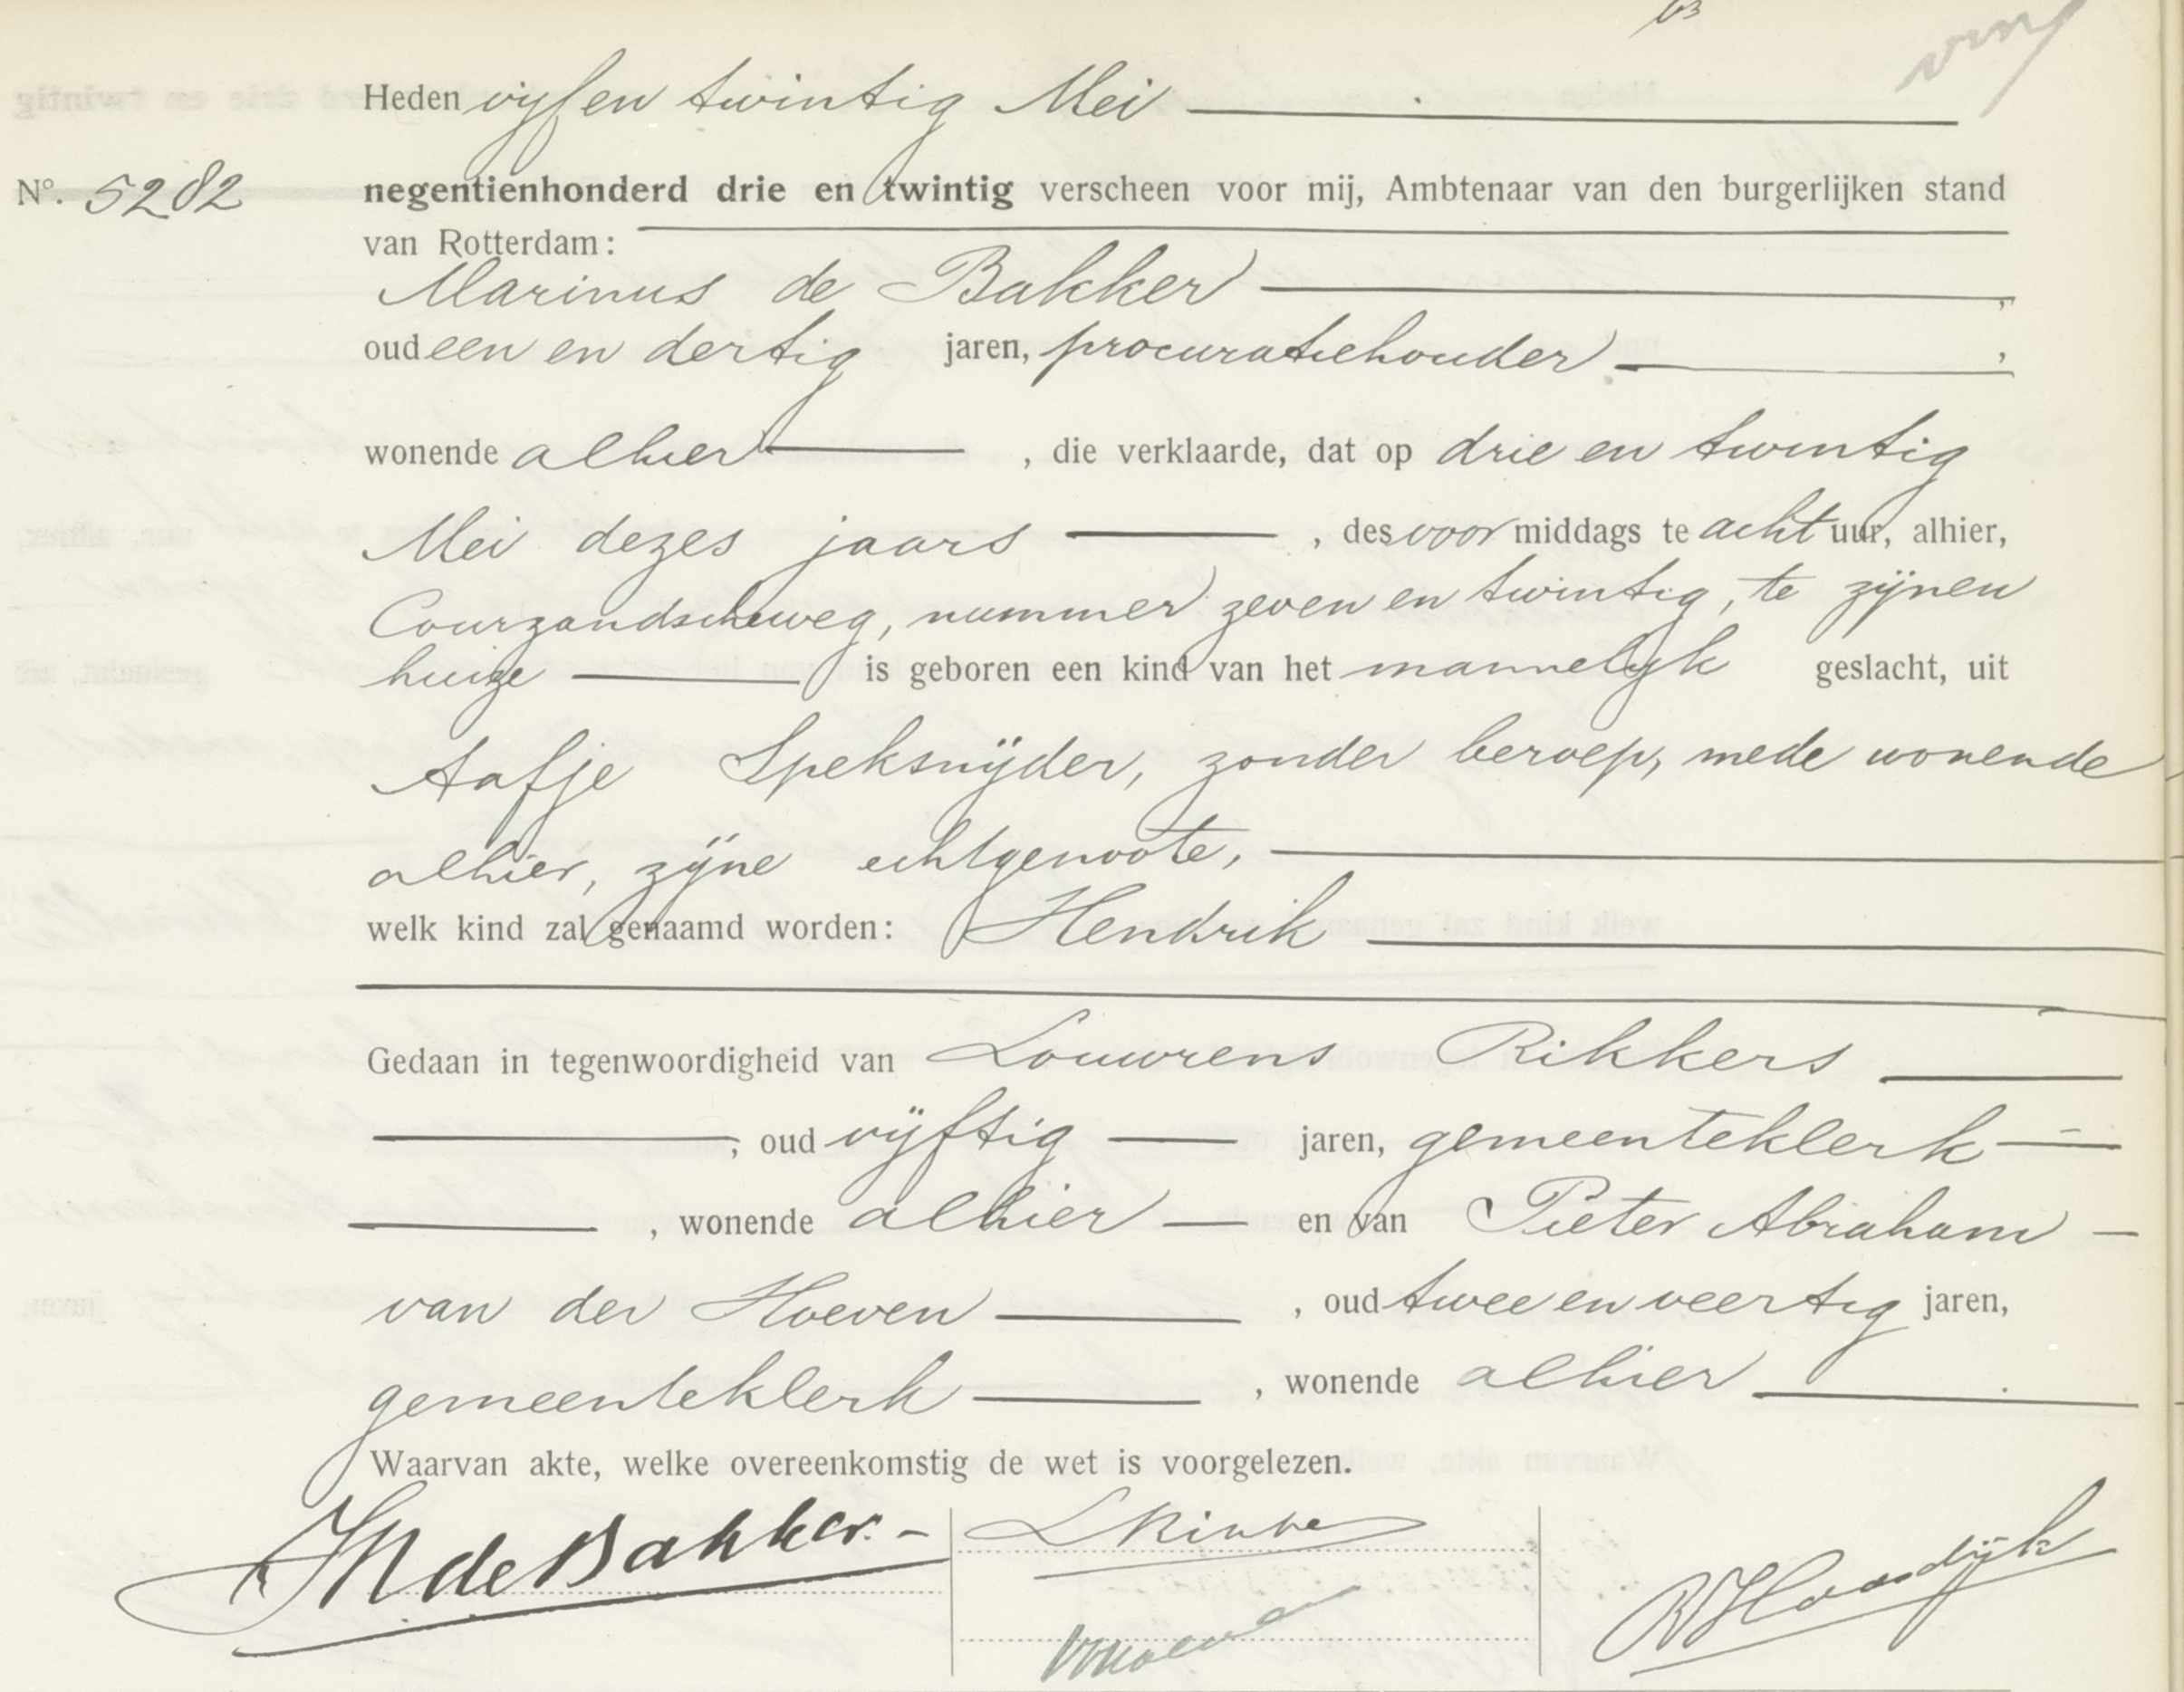 Heden vijf en twintig Mei
Nº. 5282
negentienhonderd drie en twintig verscheen voor mij, Ambtenaar van den burgerlijken stand
van Rotterdam:
Marinus de Bakker,
oud een en dertig jaren, procuratiehouder,
wonende alhier, die verklaarde, dat op drie en twintig
Mei dezes jaars, des voor middags te acht uur, alhier,
Courzandscheweg, nummer zeven en twintig, te zijnen
huize is geboren een kind van het mannelijk geslacht, uit
Aafje Speksnijder, zonder beroep, mede wonende
alhier, zijne echtgenoote,
welk kind zal genaamd worden: Hendrik
Gedaan in tegenwoordigheid van Louwrens Rikkers
, oud vijftig jaren, gemeenteklerk
, wonende alhier en van Pieter Abraham
van der Hoeven, oud twee en veertig jaren,
gemeenteklerk, wonende alhier.
Waarvan akte, welke overeenkomstig de wet is voorgelezen.
M de Bakker.-